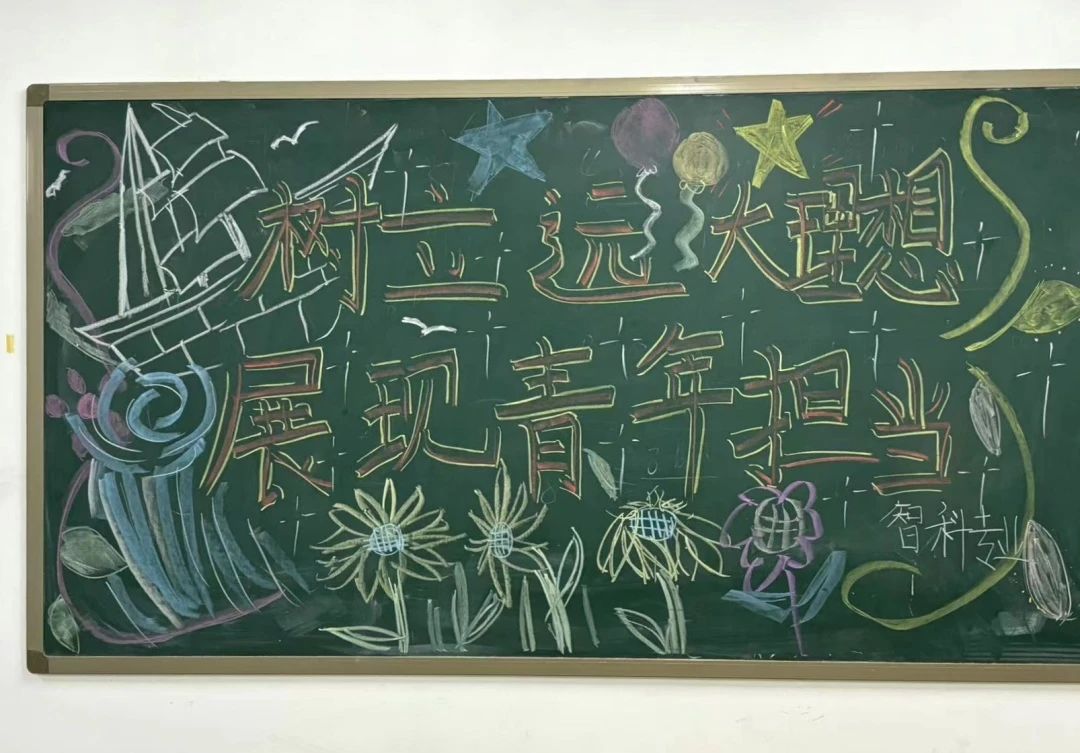 树立远大理想
展现青年担当
智科专业